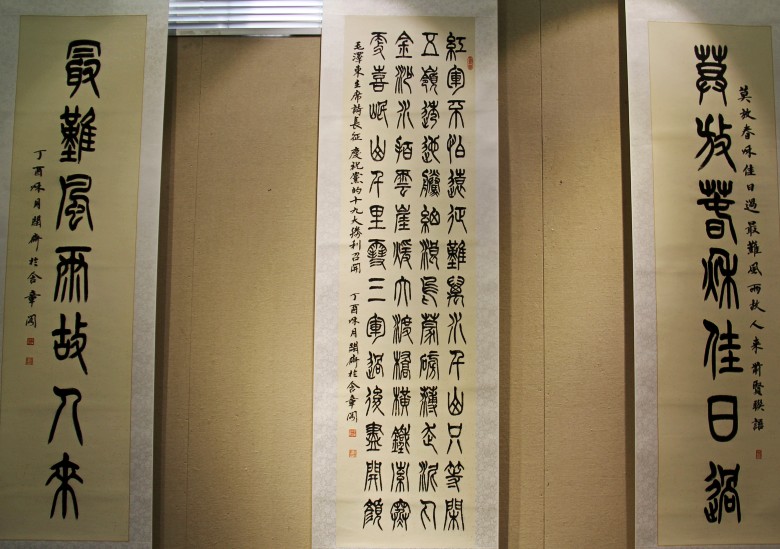 莫放春秋佳日過最難風雨故人来前賢聯語
莫放春秋佳日過
紅軍不怕遠征難萬水千山只等閑
五嶺逶迤騰細浪烏蒙磅礴走泥丸
金沙水拍雲崖暖大渡橋橫鐵索寒
更喜岷山千里雪三軍過後盡開顏
毛澤東主席詩長征 慶祝黨的十九大勝利召開 丁酉秋月齋於含章閣
最難風雨故人來
丁酉秋月齋於含章閣